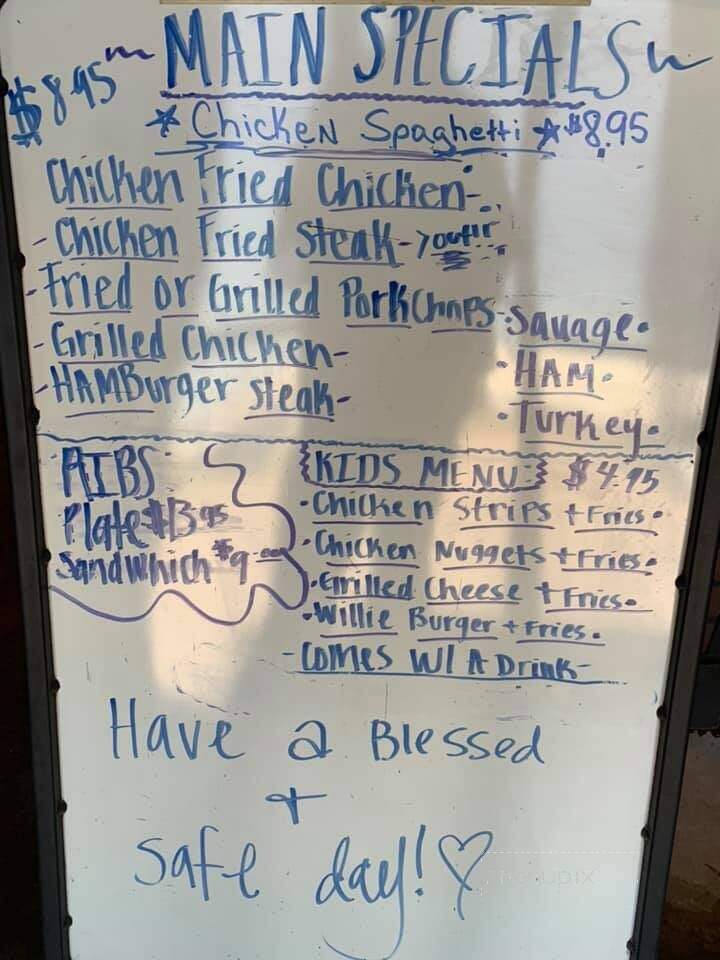 MAIN SPECIALS
$8.95
* Chicken Spaghetti * $8.95
Chicken Fried Chicken-
- Chicken Fried Steak->
- Fried or Grilled PorkChops
- Grilled Chicken-
- HAMBurger Steak-
• Sauage•
• HAM•
• Turkey•
RIBS
Plate $13.95
Sandwhich $9
KIDS MENU: $4.95
• Chicken Strips + Fries•
• Chicken Nuggets + Fries•
• Grilled Cheese + Fries•
• Willie Burger + Fries•
- Comes W/ A Drink-
Have a Blessed
+
Safe day! ♡